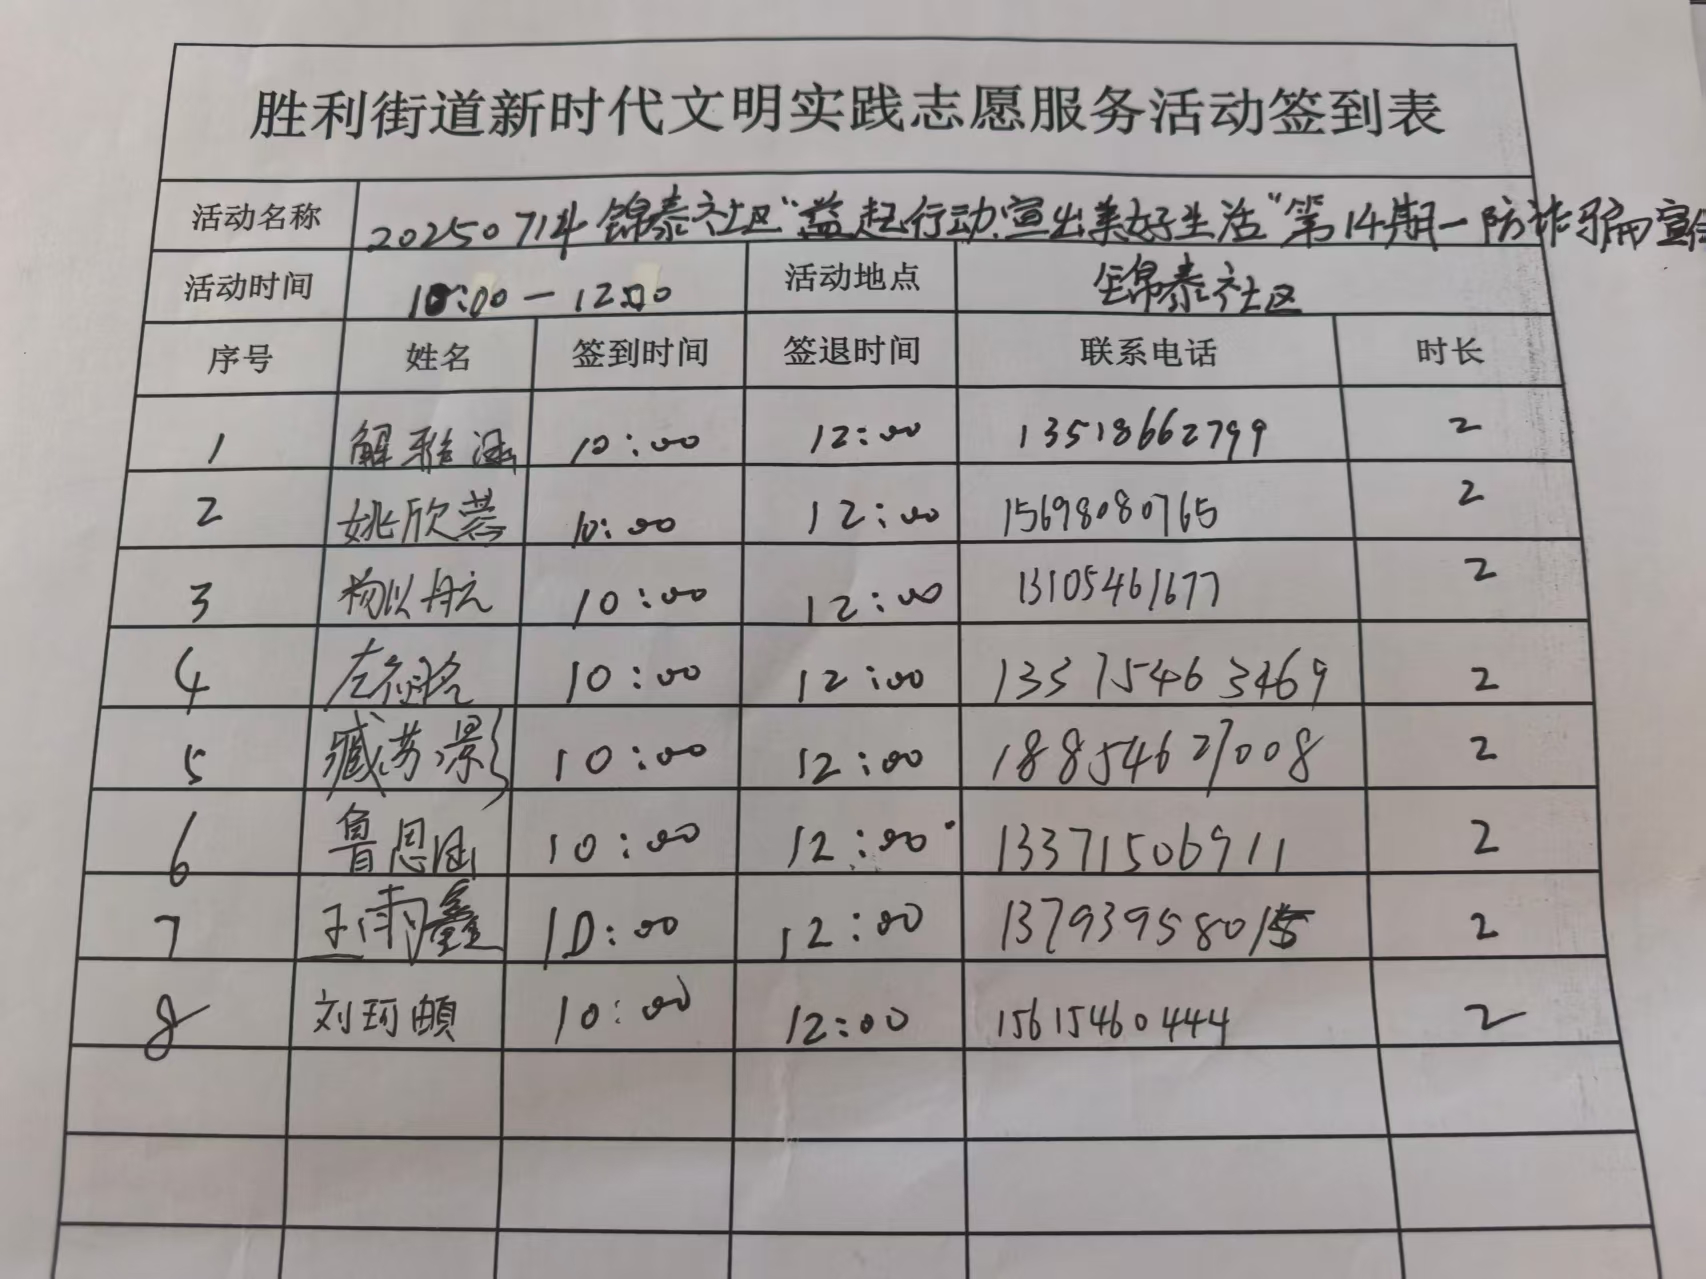 胜利街道新时代文明实践志愿服务活动签到表
活动名称 20250714 锦泰社区“益起行动,宣出美好生活”第14期—防诈骗宣传
活动时间 10:00-12:00 活动地点 锦泰社区
序号 姓名 签到时间 签退时间 联系电话 时长
1 解雅涵 10:00 12:00 13518662799 2
2 姚欣蓉 10:00 12:00 15698080765 2
3 杨以航 10:00 12:00 13105461677 2
4 左 10:00 12:00 13375463469 2
5 臧苏漯 10:00 12:00 18854627008 2
6 鲁恩涵 10:00 12:00 13371506911 2
7 王雨鑫 10:00 12:00 13793958015 2
8 刘珂頔 10:00 12:00 15615460444 2